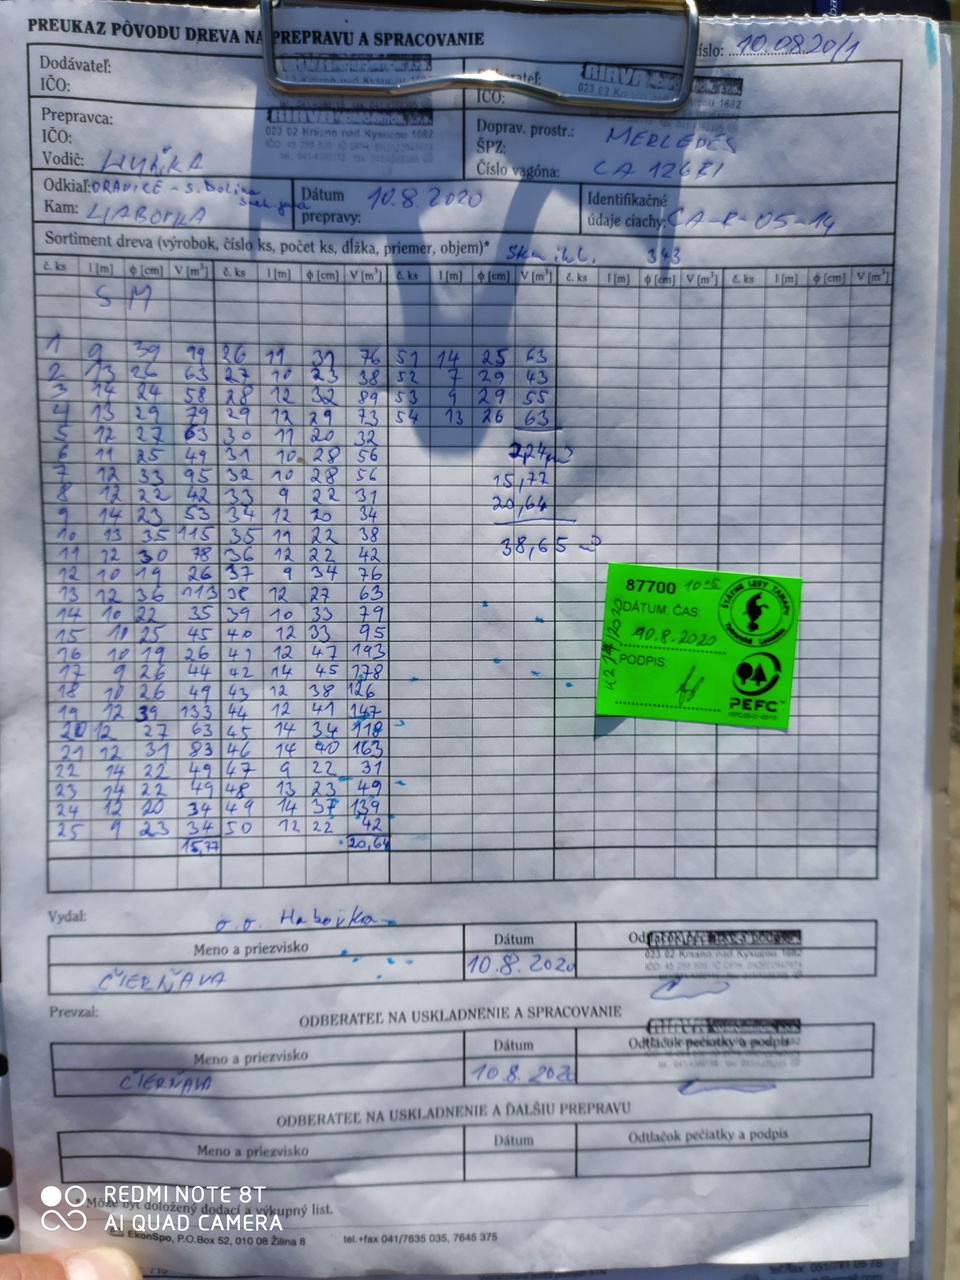 PREUKAZ PÔVODU DREVA NA PREPRAVU A SPRACOVANIE
číslo: 10.0820/1
Dodávateľ:
IČO:
Odberateľ: RIAVA
IČO:
023 02 Krásno nad Kysucou 1682
Prepravca:
IČO:
023 02 Krásno nad Kysucou 1682
Vodič:
Doprav. prostr.: MERCEDES
ŠPZ:
Číslo vagóna: CA 126
Odkiaľ: ORAVICE - S. Dolina
Kam: HABOVKA
Dátum
prepravy: 10.8.2020
Identifikačné
údaje ciachy: CA-R-05-14
Sortiment dreva (výrobok, číslo ks, počet ks, dĺžka, priemer, objem)* 343
č. ks l [m] ϕ [cm] V [m³] č. ks l [m] ϕ [cm] V [m³] č. ks l [m] ϕ [cm] V [m³] č. ks l [m] ϕ [cm] V [m³] č. ks l [m] ϕ [cm] V [m³]
S M
1 9 39 99 26 11 31 76 51 14 25 63
2 13 26 63 27 10 23 38 52 7 29 43
3 14 24 58 28 12 32 89 53 9 29 55
4 13 29 79 29 12 29 73 54 13 26 63
5 12 27 63 30 11 20 32
6 11 25 49 31 10 28 56 2,24 m³
7 12 33 95 32 10 28 56 15,77
8 12 22 42 33 9 22 31 20,64
9 14 23 53 34 12 20 34
10 13 35 115 35 11 22 38 38,65 m³
11 12 30 78 36 12 22 42
12 10 19 26 37 9 34 76
13 12 36 113 38 12 27 63
14 10 22 35 39 10 33 79
15 10 25 45 40 12 33 95
16 10 19 26 41 12 47 193
17 9 26 44 42 14 45 178
18 10 26 49 43 12 38 126
19 12 39 133 44 12 41 147
20 12 27 63 45 14 34 118
21 12 31 83 46 14 40 163
22 14 22 49 47 9 22 31
23 14 22 49 48 13 23 49
24 12 20 34 49 14 37 139
25 9 23 34 50 12 22 42
15,77 20,64
87700 10 05
DÁTUM, ČAS:
10.8.2020
PODPIS:
ŠTÁTNE LESY TANAPU
Tatranská Lomnica
PEFC
Vydal: o.o. Habovka
Meno a priezvisko
Dátum
Odtlačok pečiatky a podpis
023 02 Krásno nad Kysucou 1682
ČIERŇAVA
10.8.2020
Prevzal:
ODBERATEĽ NA USKLADNENIE A SPRACOVANIE
Meno a priezvisko
Dátum
Odtlačok pečiatky a podpis
ČIERŇAVA
10.8.2020
ODBERATEĽ NA USKLADNENIE A ĎALŠIU PREPRAVU
Meno a priezvisko
Dátum
Odtlačok pečiatky a podpis
* Môže byť doložený dodací a výkupný list.
EkonSpo, P.O.Box 52, 010 08 Žilina 8 tel.+fax 041/7635 035, 7645 375
REDMI NOTE 8T
AI QUAD CAMERA